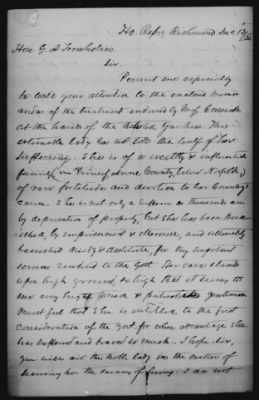 Ho. Reps Richmond Dec 13/64
Hon. G. A. Trenholm
Sir.
Permit me especially
to call your attention to the enclosed memo
anda of the treatment endured by Mrs
at the hands of the Yankees. This
estimable lady has not told the half of her
sufferings. She is of a wealthy & influential
family in Princess Anne County, (near Norfolk,)
of rare fortitude and devotion to her Country's
cause. She is not only a sufferer in thousands
by deprivation of property, but she has been
by imprisonment & , and ultimately
banished , & destitute, for very important
services rendered to the Govt. Her case stands
upon high ground, so high that it seems to
me every & patriotic gentleman
must feel that She is entitled to the first
consideration of the Govt. for whose advantage she
has suffered and braved so much. I hope Sir,
you will aid this noble lady in the matter of
securing her the means of living. I do not